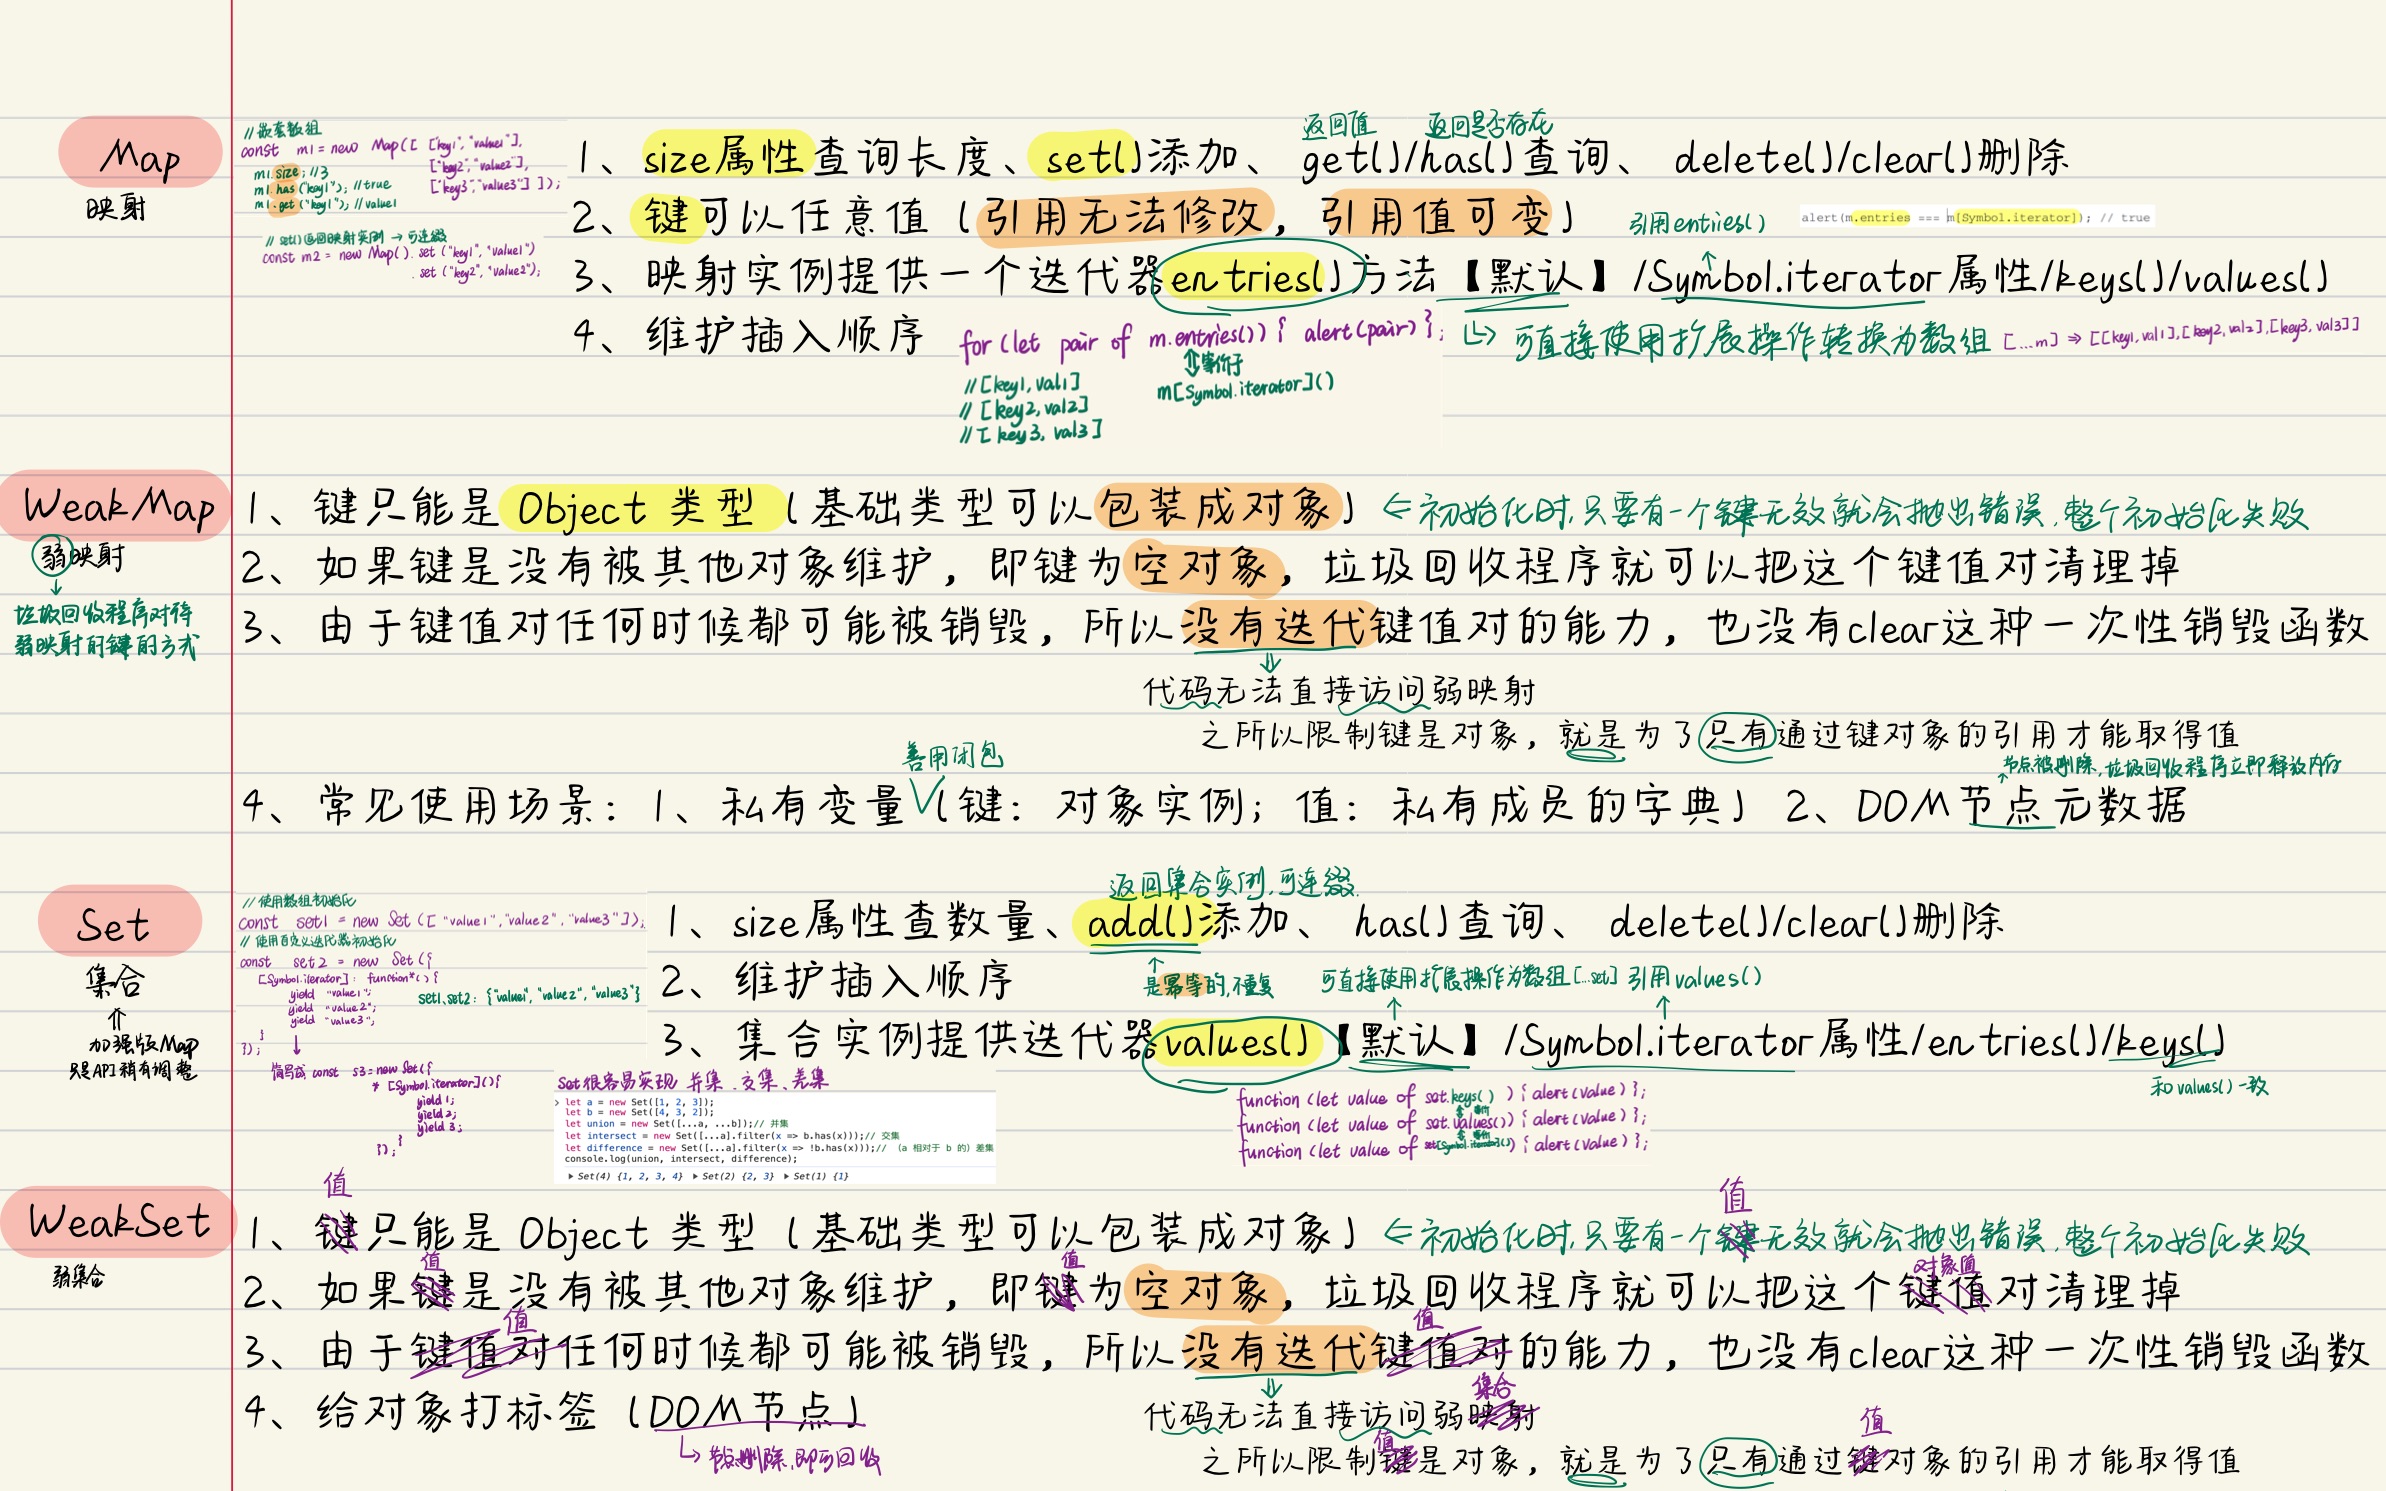 Map
映射
// 嵌套数组
const m1 = new Map([ ["key1","value1"],
["key2","value2"],
["key3","value3"] ]);
m1.size; //3
m1.has("key1"); //true
m1.get("key1"); //value1
// set()返回映射实例 → 可连缀
const m2 = new Map().set("key1","value1")
.set("key2","value2");
返回值 返回是否存在
1、size属性查询长度、set()添加、get()/has()查询、delete()/clear()删除
2、键可以任意值(引用无法修改,引用值可变)
引用entries()
alert(m.entries === m[Symbol.iterator]); // true
3、映射实例提供一个迭代器entries()方法【默认】/Symbol.iterator属性/keys()/values()
4、维护插入顺序
for (let pair of m.entries()) { alert(pair) };
// [key1, val1]
// [key2, val2]
// [key3, val3]
等价于
m[Symbol.iterator]()
可直接使用扩展操作转换为数组 [...m] ⇒ [[key1,val1],[key2,val2],[key3,val3]]
WeakMap
弱映射
↓
垃圾回收程序对待
弱映射的键的方式
1、键只能是 Object 类型(基础类型可以包装成对象) ← 初始化时,只要有一个键无效就会抛出错误,整个初始化失败
2、如果键是没有被其他对象维护,即键为空对象,垃圾回收程序就可以把这个键值对清理掉
3、由于键值对任何时候都可能被销毁,所以没有迭代键值对的能力,也没有clear这种一次性销毁函数
代码无法直接访问弱映射
之所以限制键是对象,就是为了只有通过键对象的引用才能取得值
善用闭包
节点被删除,垃圾回收程序立即释放内存
4、常见使用场景:1、私有变量(键:对象实例;值:私有成员的字典) 2、DOM节点元数据
Set
集合
⇑
加强版Map
只是API稍有调整
// 使用数组初始化
const set1 = new Set(["value1","value2","value3"]);
// 使用自定义迭代器初始化
const set2 = new Set({
[Symbol.iterator]: function*() {
yield "value1";
yield "value2";
yield "value3";
}
});
set1、set2: {"value1","value2","value3"}
简写成 const s3 = new Set({
* [Symbol.iterator]() {
yield 1;
yield 2;
yield 3;
}
});
返回集合实例,可连缀.
1、size属性查数量、add()添加、has()查询、delete()/clear()删除
是幂等的,不重复
2、维护插入顺序
可直接使用扩展操作为数组[...set] 引用values()
3、集合实例提供迭代器values()【默认】/Symbol.iterator属性/entries()/keys()
和values()一致
Set很容易实现 并集、交集、差集
let a = new Set([1, 2, 3]);
let b = new Set([4, 3, 2]);
let union = new Set([...a, ...b]);// 并集
let intersect = new Set([...a].filter(x => b.has(x)));// 交集
let difference = new Set([...a].filter(x => !b.has(x)));// (a 相对于 b 的) 差集
console.log(union, intersect, difference);
▶ Set(4) {1, 2, 3, 4} ▶ Set(2) {2, 3} ▶ Set(1) {1}
function (let value of set.keys()) { alert(value) };
等价
function (let value of set.values()) { alert(value) };
等价
function (let value of set[Symbol.iterator]()) { alert(value) };
WeakSet
弱集合
值 值
1、键只能是 Object 类型(基础类型可以包装成对象) ← 初始化时,只要有一个键无效就会抛出错误,整个初始化失败
值 值 对象值
2、如果键是没有被其他对象维护,即键为空对象,垃圾回收程序就可以把这个键值对清理掉
值 值
3、由于键值对任何时候都可能被销毁,所以没有迭代键值对的能力,也没有clear这种一次性销毁函数
集合
代码无法直接访问弱映射
值 值
之所以限制键是对象,就是为了只有通过键对象的引用才能取得值
4、给对象打标签(DOM节点)
节点删除,即可回收